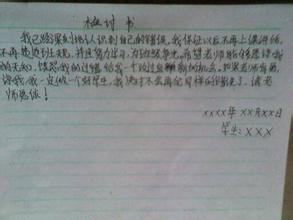 检讨书
我已经深刻地认识到自己的错误,我保证以后不再上课讲话,
不再迟到旷课,并且努力学习,为班级争光,希望老师能够原谅我
的无知,饶恕我的过错,给我一个改过自新的机会,如果老师肯原
谅我,我一定做一个好学生,我绝对不会再犯同样的错误了。请老
师恕饶!
xxxx年xx月xx日
学生:XXX